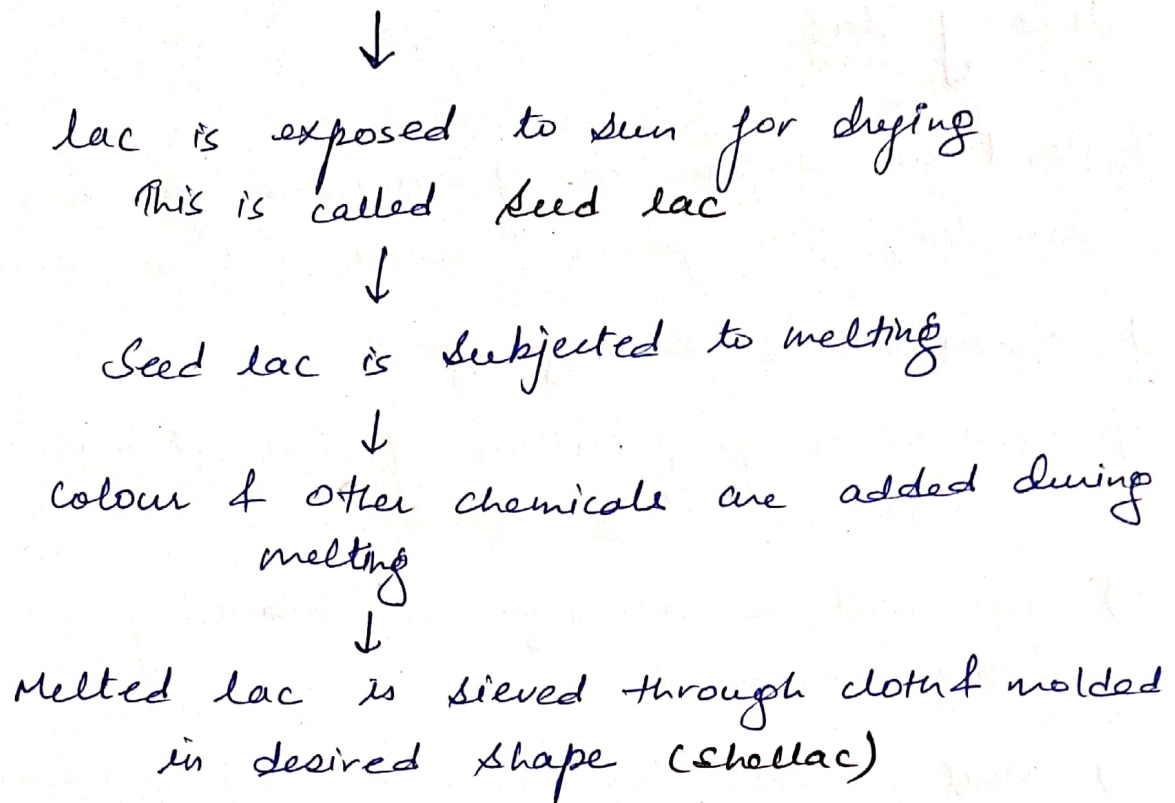 ↓
lac is exposed to sun for drying
This is called seed lac
↓
Seed lac is subjected to melting
↓
Colour & other chemicals are added during
melting
↓
Melted lac is sieved through cloth & molded
in desired shape (shellac)